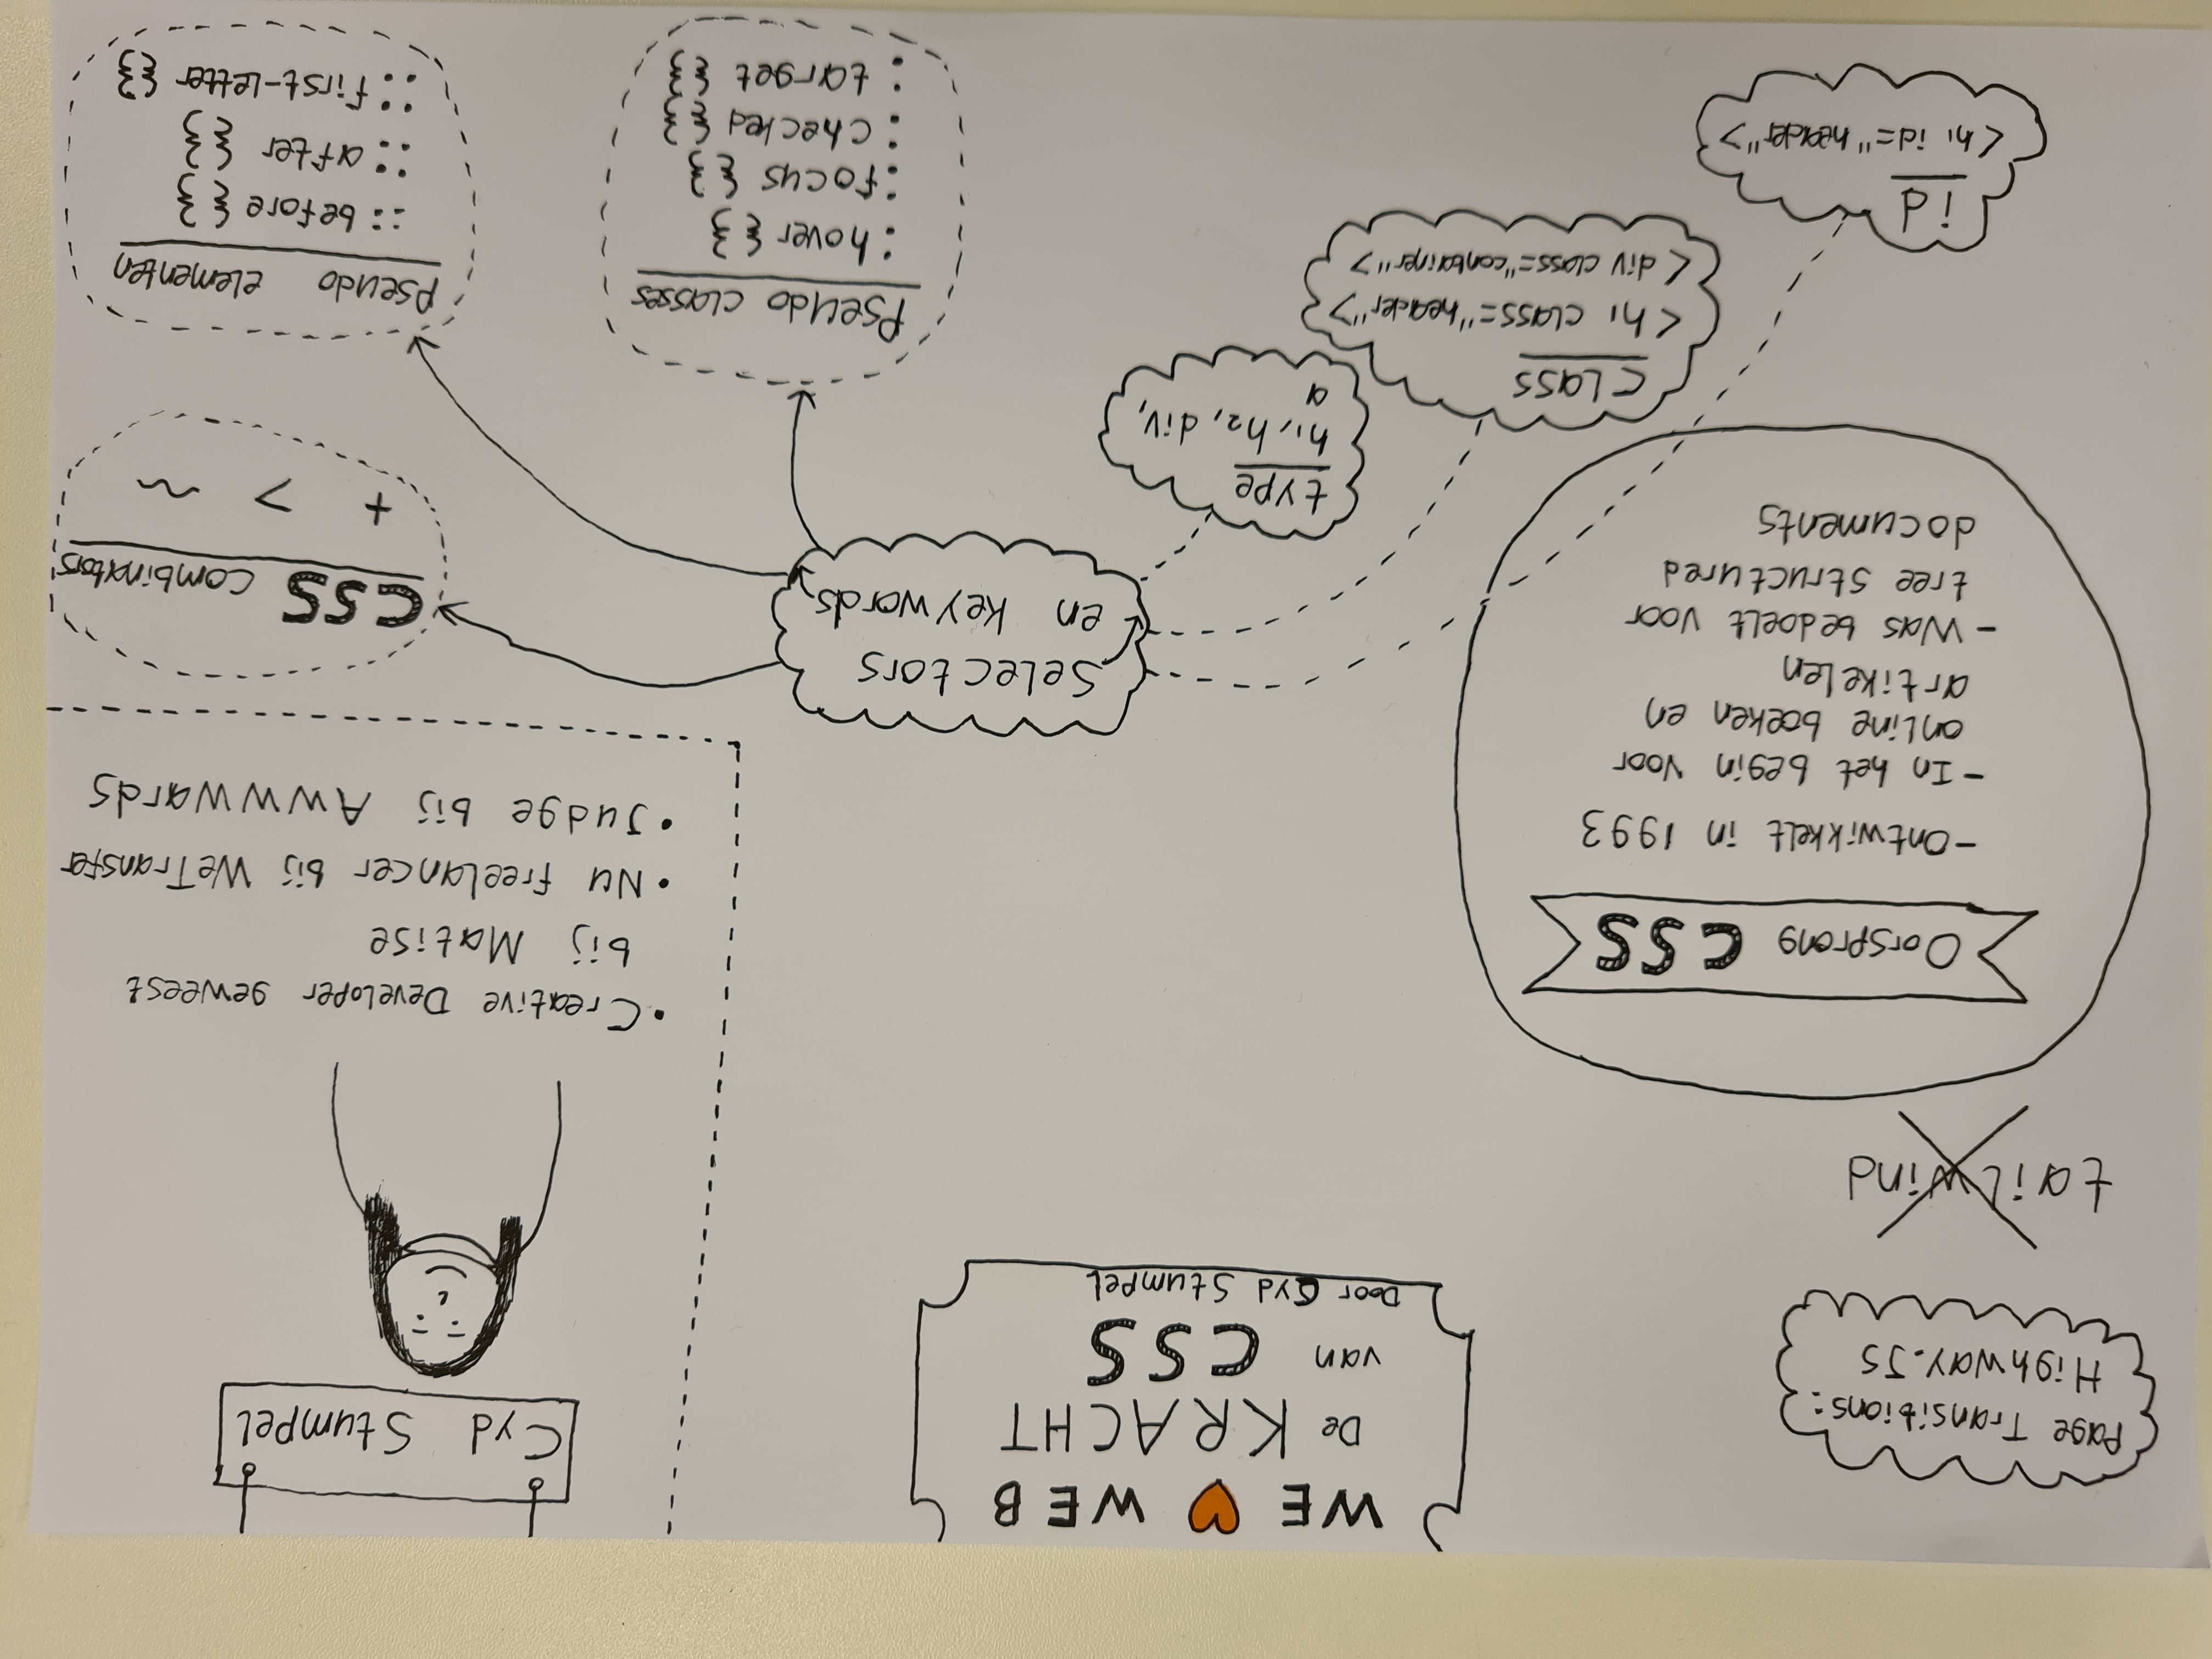 WE WEB
De KRACHT
van CSS
Door Cyd Stumpel
Page Transitions:
Highway.JS
tailwind
Oorsprong CSS
-Ontwikkelt in 1993
-In het begin voor
online boeken en
artikelen
-Was bedoelt voor
tree structured
documents
Cyd Stumpel
•Creative Developer geweest
bij Matise
•Nu freelancer bij WeTransfer
•Judge bij Awwwards
Selectors
en keywords
id
<h1 id="header">
class
<h1 class="header">
<div class="container">
type
h1, h2, div,
a
Pseudo classes
:hover {}
:focus {}
:checked {}
:target {}
Pseudo elementen
::before {}
::after {}
::first-letter {}
CSS combinators
+ > ~